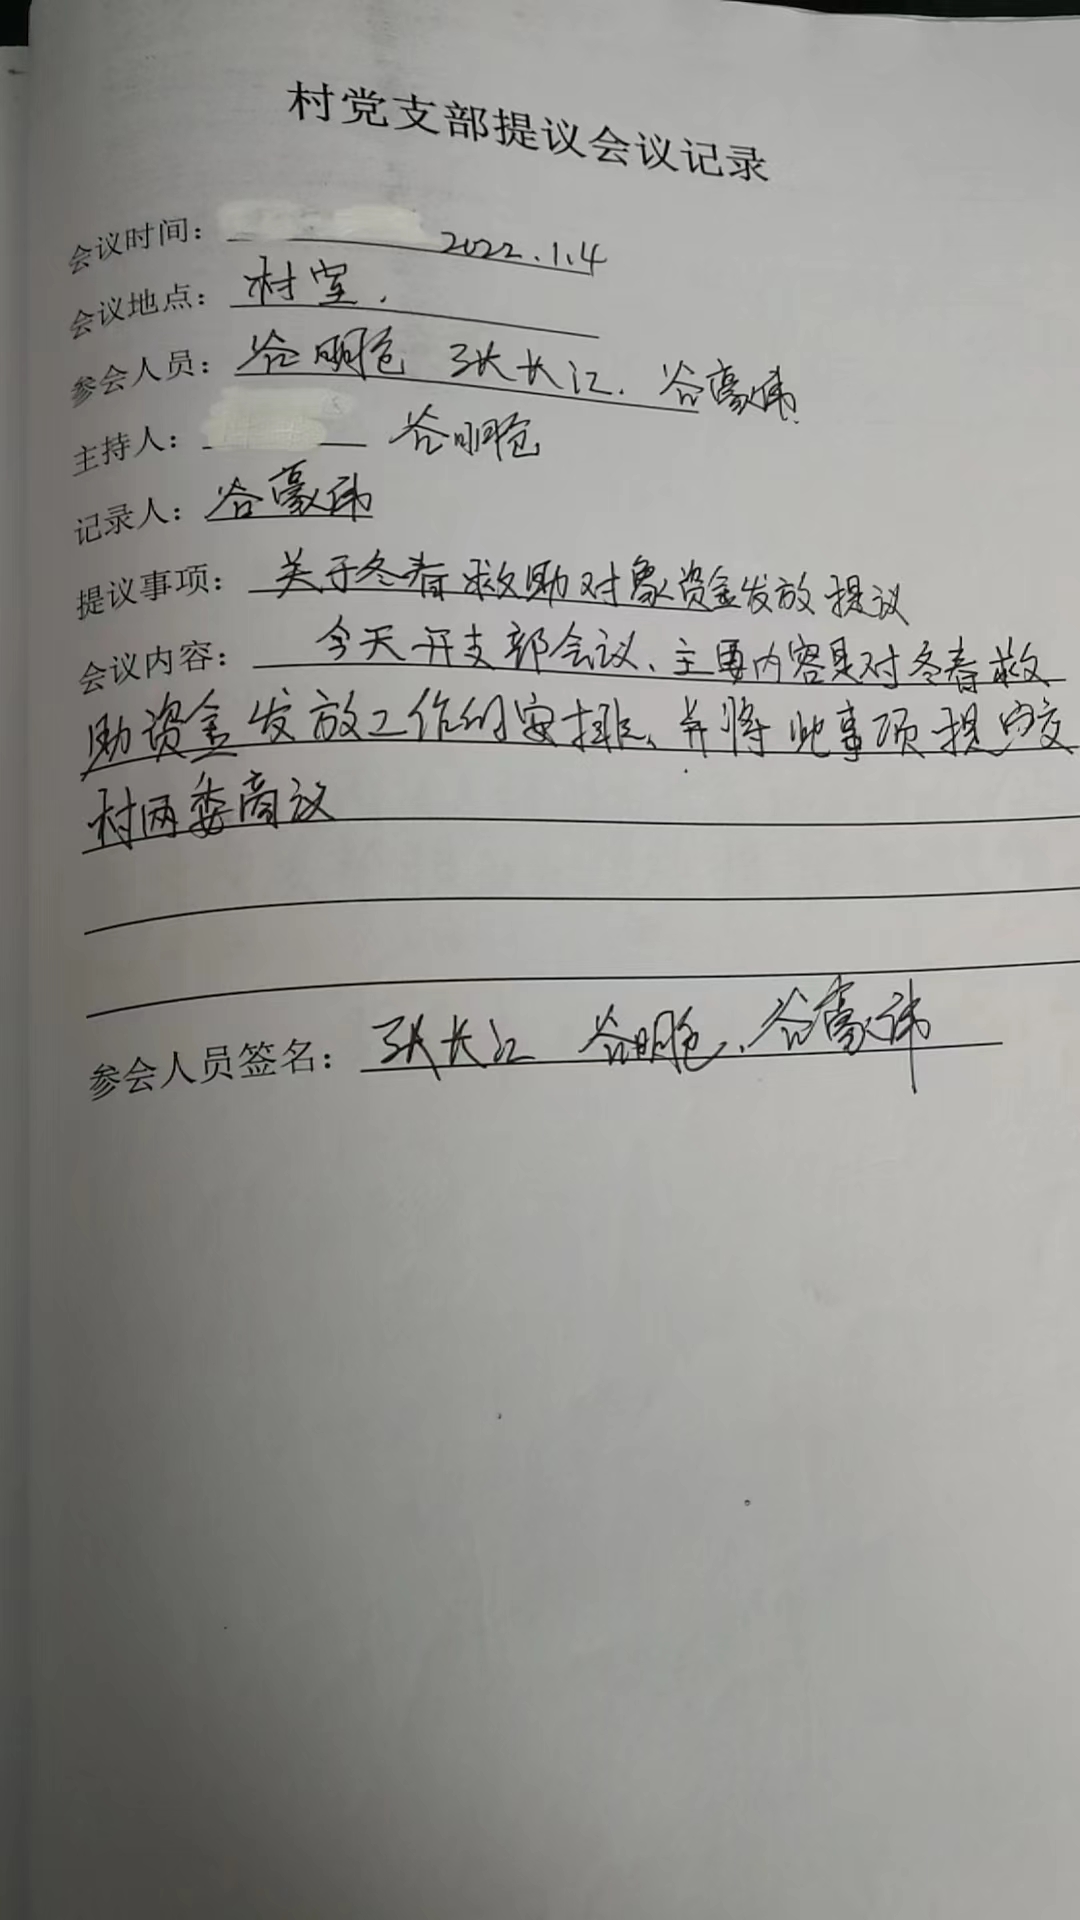 村党支部提议会议记录
会议时间： 2022.1.4
会议地点：村室.
参会人员：谷明 张长江. 谷豪伟
主持人： 谷明
记录人：谷豪伟
提议事项：关于冬春救助对象资金发放提议
会议内容：今天开支部会议、主要内容是对冬春救
助资金发放工作的安排、并将此事项提交
村两委商议
参会人员签名：张长江 谷明 、谷豪伟